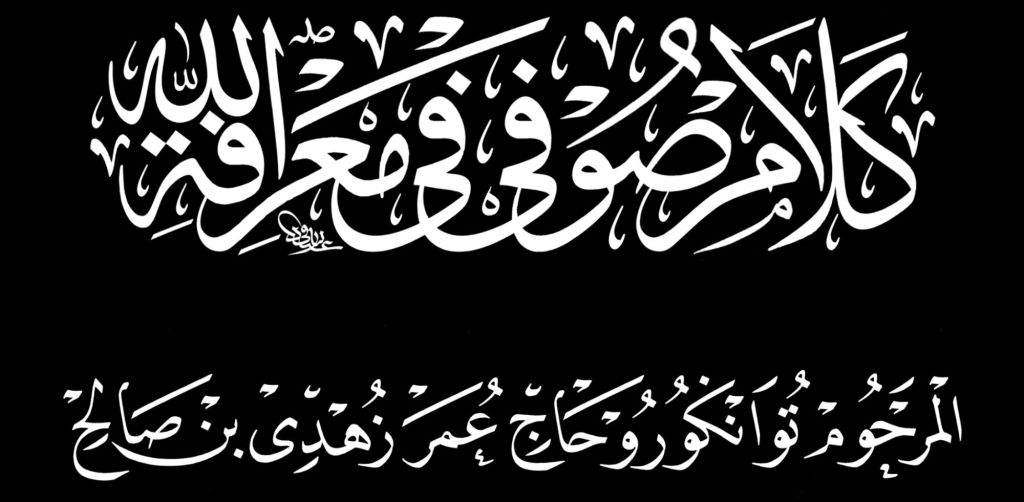 كَلَامْ صُوْفِى فِى مَعْرِفَةِ اللّٰه
المَرْحُوْمْ تُوَانْكُوْرُوْ حَاجّ عُمَرْ زُهْدِّىْ بِنْ صَالِحْ